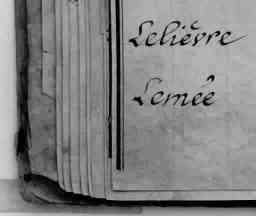 Lelièvre
Lemée